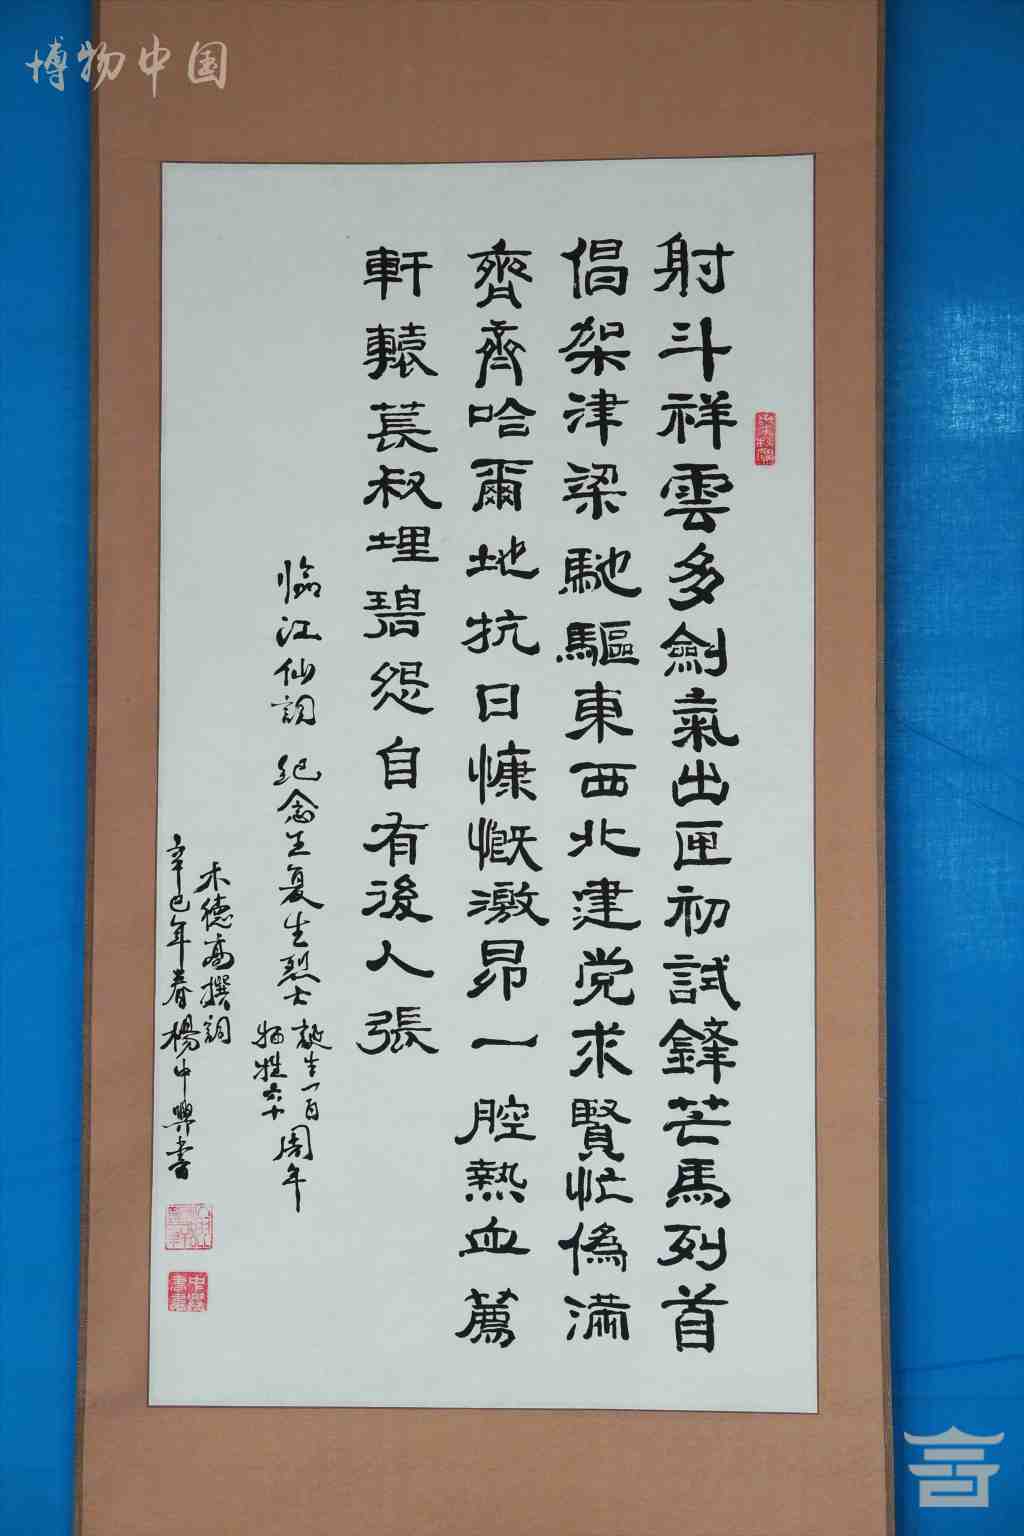 博物中国
射斗祥雲多劍氣出匣初試鋒芒馬列首
倡架津梁馳驅東西北建党求賢忙偽满
齊齊哈爾地抗日慷慨激昂一腔熱血薦
軒轅萇叔埋碧怨自有後人張
臨江仙詞 紀念王复生烈士 誕生一百 牺牲六十 周年
木德高撰詞
辛巳年春楊中興書